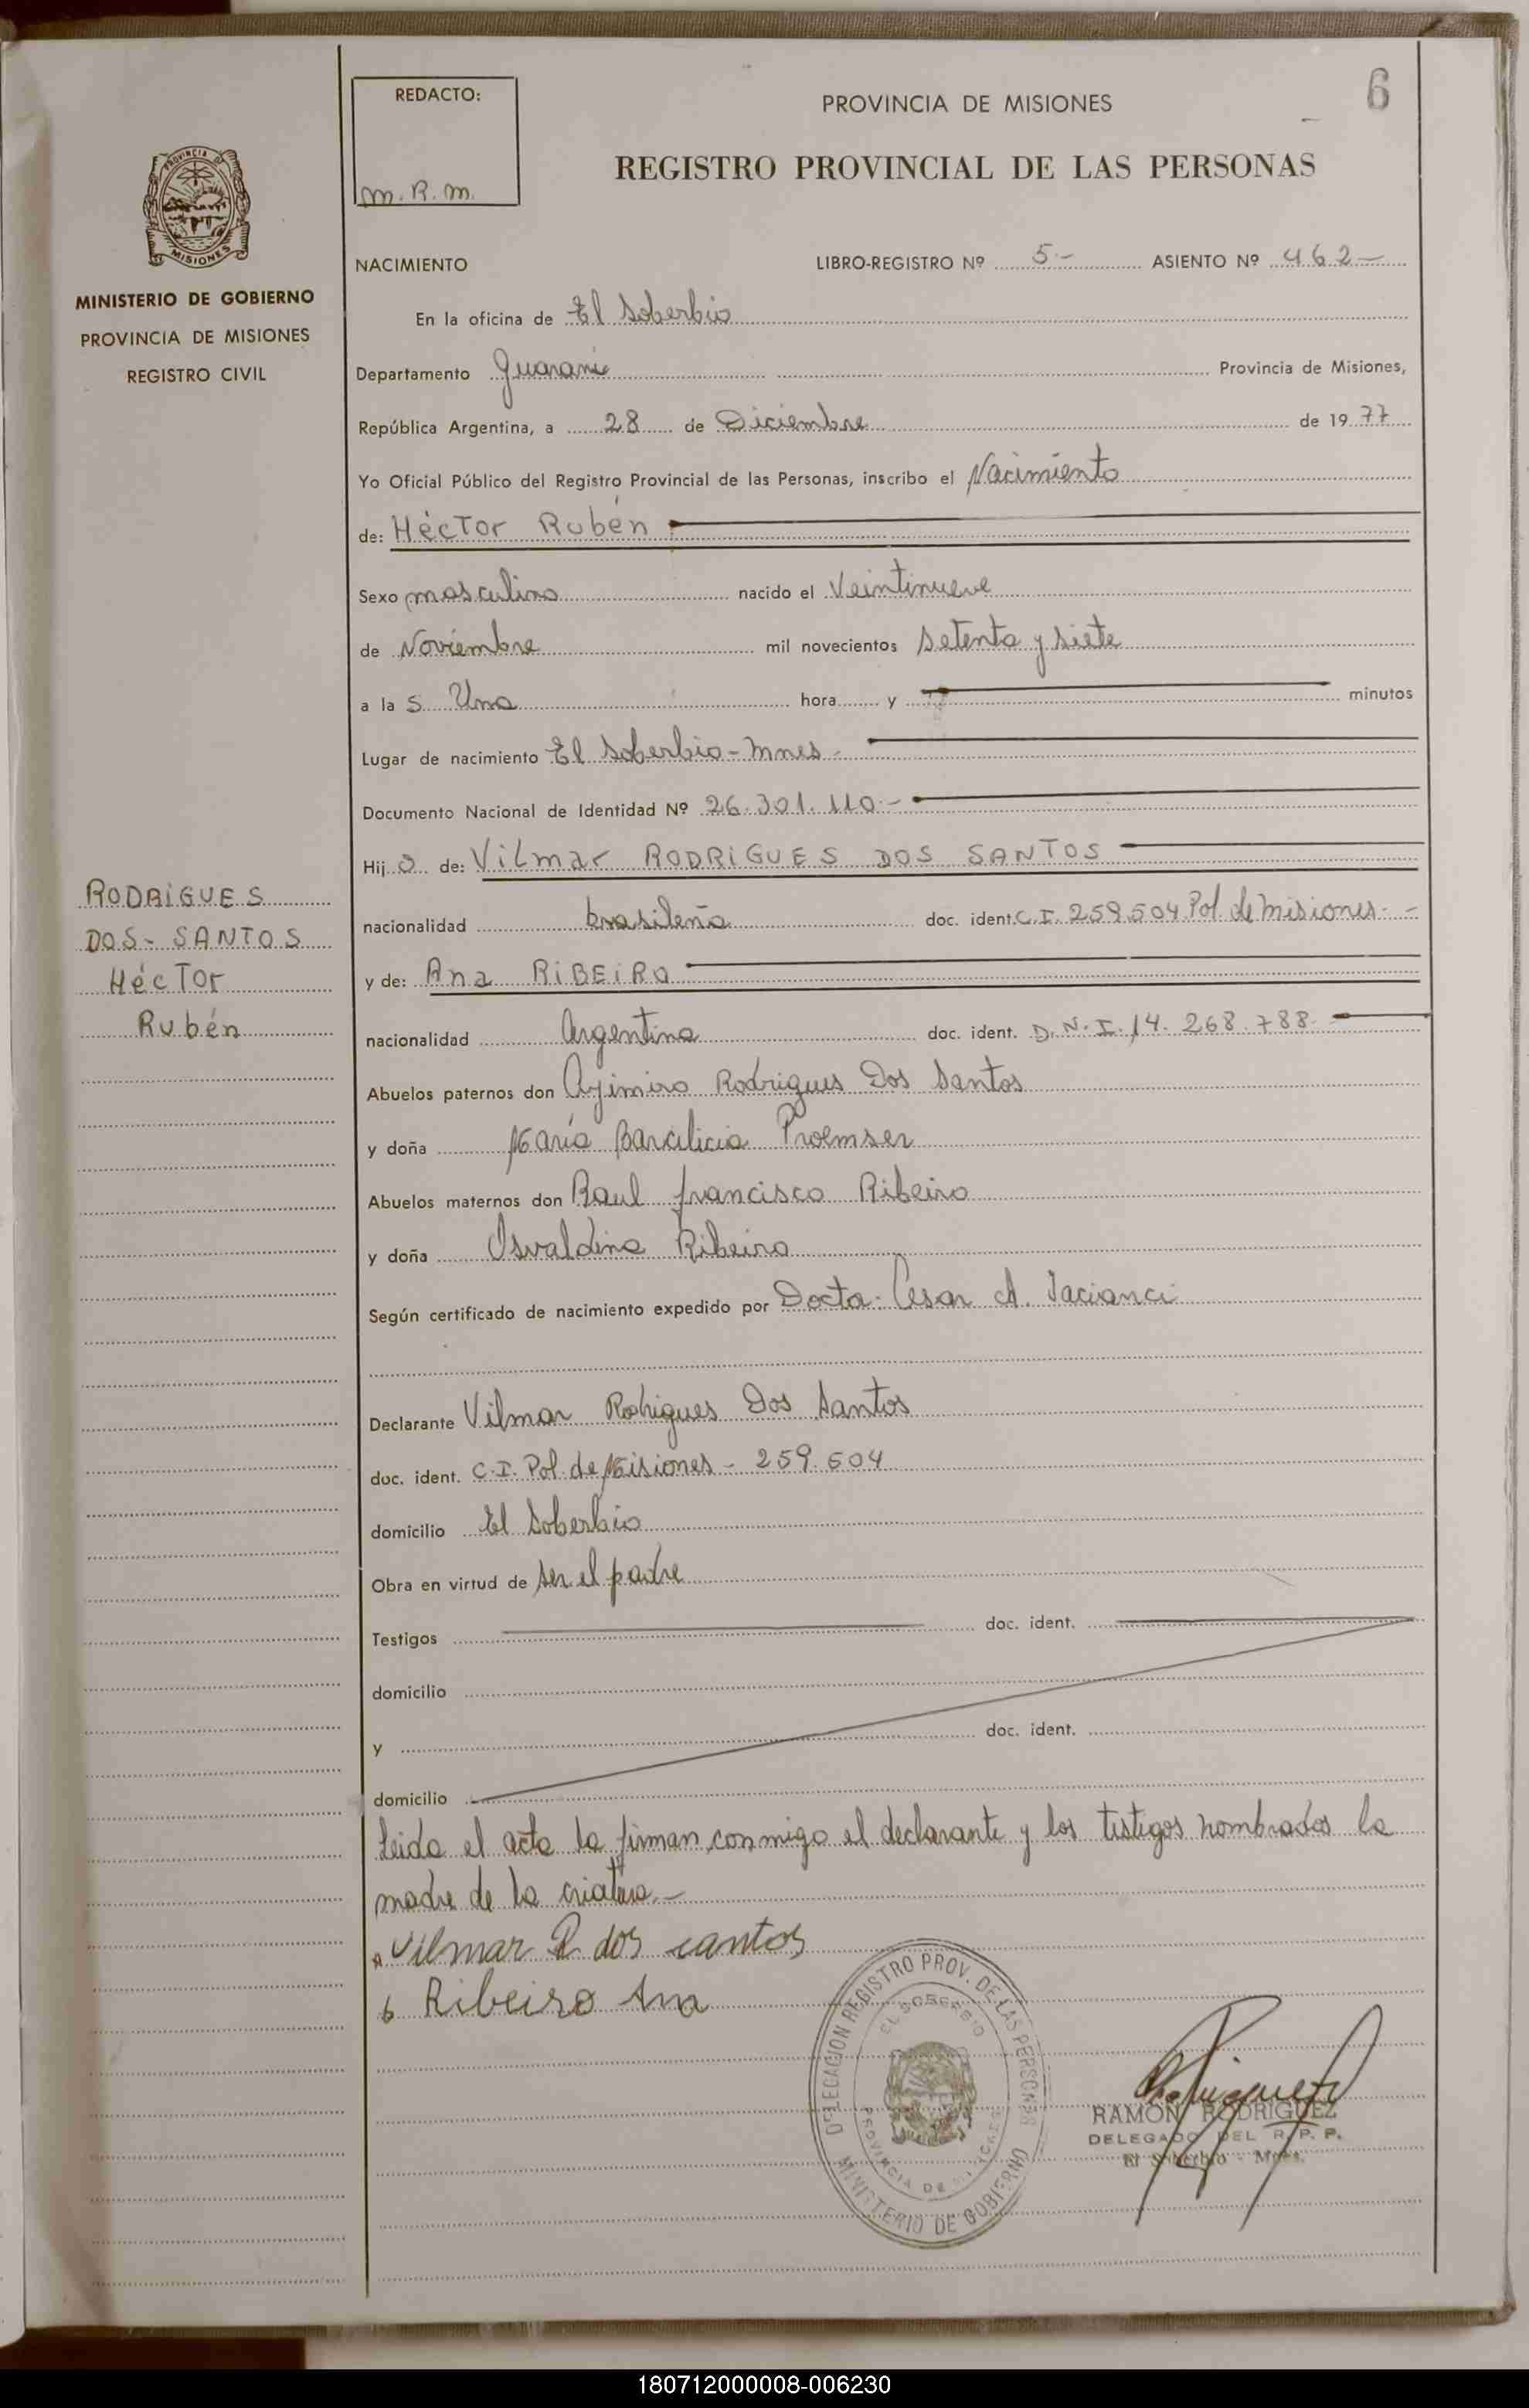 6
REDACTO:
m.R.m.
PROVINCIA DE MISIONES
REGISTRO PROVINCIAL DE LAS PERSONAS
PROVINCIA
MISIONES
MINISTERIO DE GOBIERNO
PROVINCIA DE MISIONES
REGISTRO CIVIL
NACIMIENTO LIBRO-REGISTRO Nº 5- ASIENTO Nº 462-
En la oficina de El Soberbio
Departamento Guarani Provincia de Misiones,
República Argentina, a 28 de Diciembre de 19 77
Yo Oficial Público del Registro Provincial de las Personas, inscribo el Nacimiento
de: Héctor Rubén
Sexo masculino nacido el Veintinueve
de Noviembre mil novecientos setenta y siete
a la s Una hora y minutos
Lugar de nacimiento El Soberbio - Mnes -
Documento Nacional de Identidad Nº 26.301.110.-
Hij o de: Vilmar RODRIGUES DOS SANTOS
RODRIGUES
DOS-SANTOS
Héctor
Rubén
nacionalidad brasileña doc. ident. C.I. 259.504 Pol de Misiones.-
y de: Ana RIBEIRO
nacionalidad Argentina doc. ident. D.N.I. 14.268.788
Abuelos paternos don Rodrigues Dos Santos
y doña María
Abuelos maternos don Raul Francisco Ribeiro
y doña Osvaldina Ribeiro
Según certificado de nacimiento expedido por Docta. Cesar A.
Declarante Vilmar Rodrigues Dos Santos
doc. ident. C.I. Pol. de Misiones - 259.504
domicilio El Soberbio
Obra en virtud de ser el padre
Testigos doc. ident.
domicilio
y doc. ident.
domicilio
leida el acta la firman conmigo el declarante y los testigos nombrados la
madre de la criatura.-
Vilmar R dos santos
Ribeiro Ana
DELEGACION REGISTRO PROV. DE LAS PERSONAS
EL SOBERBIO
PROVINCIA DE MISIONES
MINISTERIO DE GOBIERNO
RAMON RODRIGUEZ
DELEGADO DEL R. P. P.
El Soberbio - Mnes.
180712000008-006230